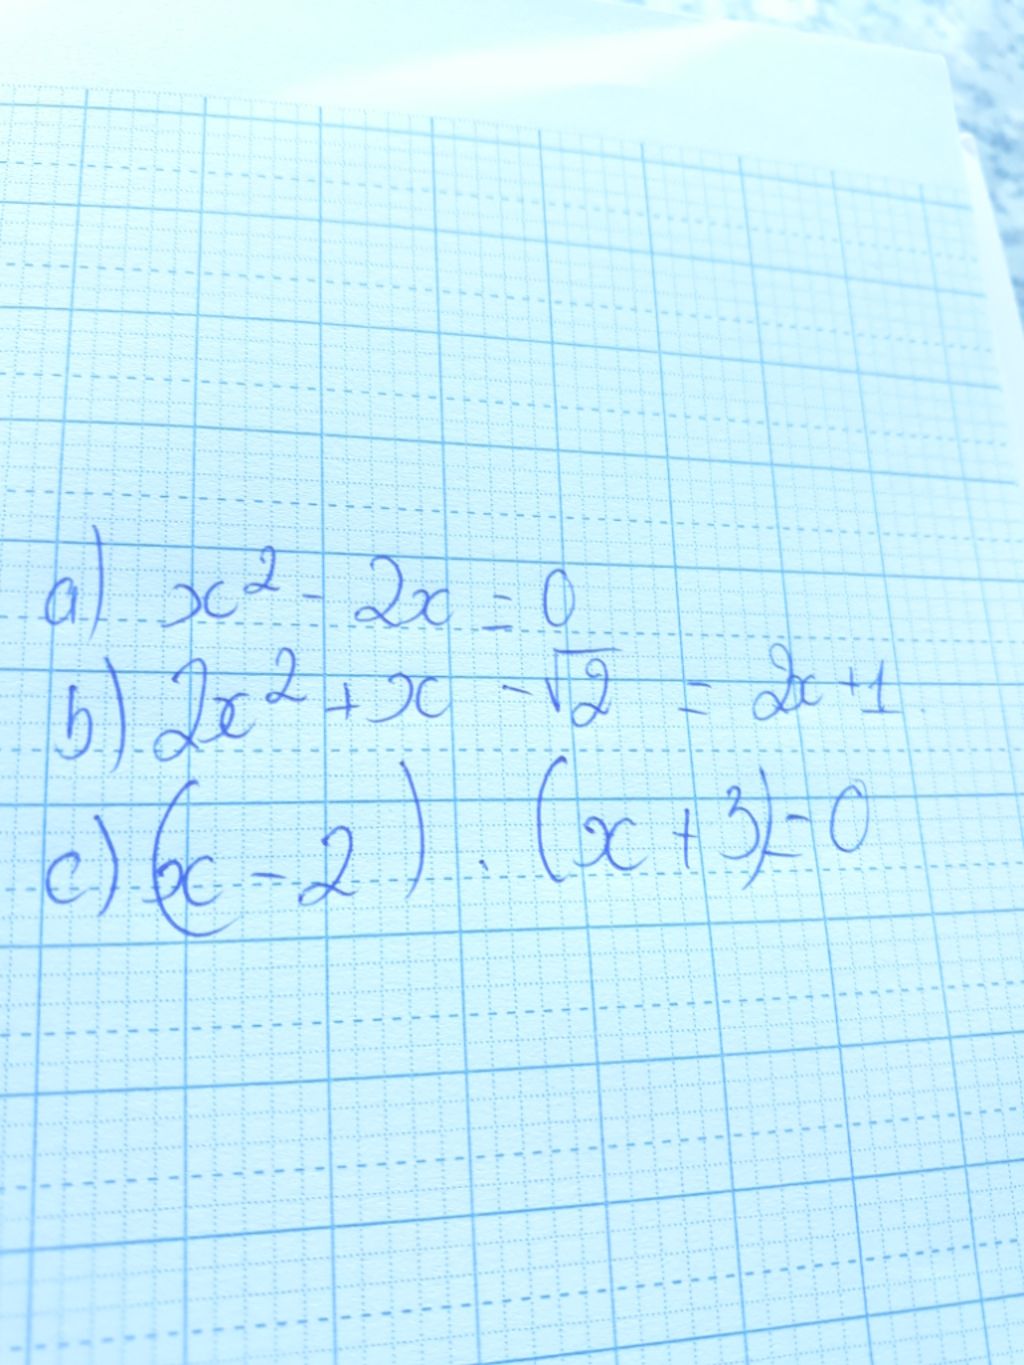 a) x² - 2x = 0
b) 2x² + x - √2 = 2x + 1
c) (x - 2) . (x + 3) = 0